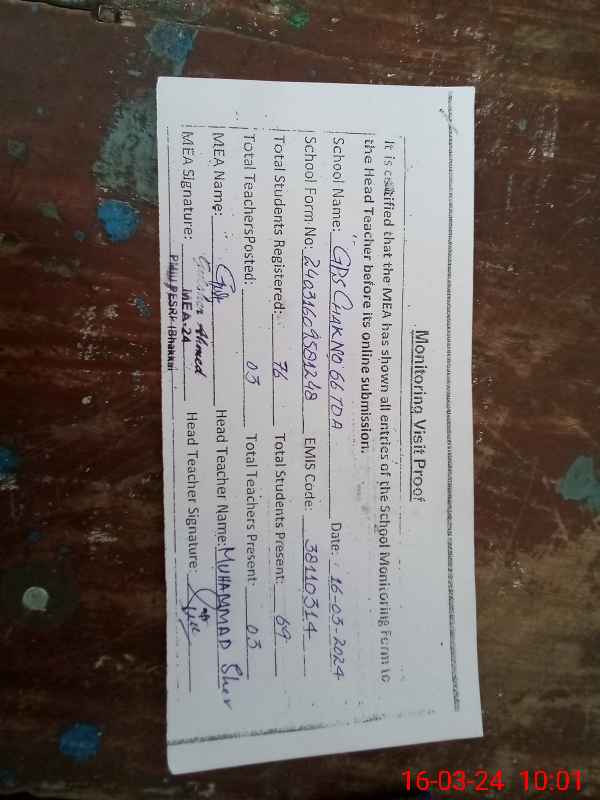 Monitoring Visit Proof
It is certified that the MEA has shown all entries of the School Monitoring Form to
the Head Teacher before its online submission.
School Name: GPS CHAK NO 66 TDA Date: 16-03-2024
School Form No: 24031609581248 EMIS Code: 38110314
Total Students Registered: 76 Total Students Present: 69
Total TeachersPosted: 03 Total Teachers Present: 03
MEA Name: Head Teacher Name: MUHAMMAD Sher
MEA Signature: Ahmed Head Teacher Signature:
MEA-24
PMIU PESRP (Bhakkar
16-03-24 10:01